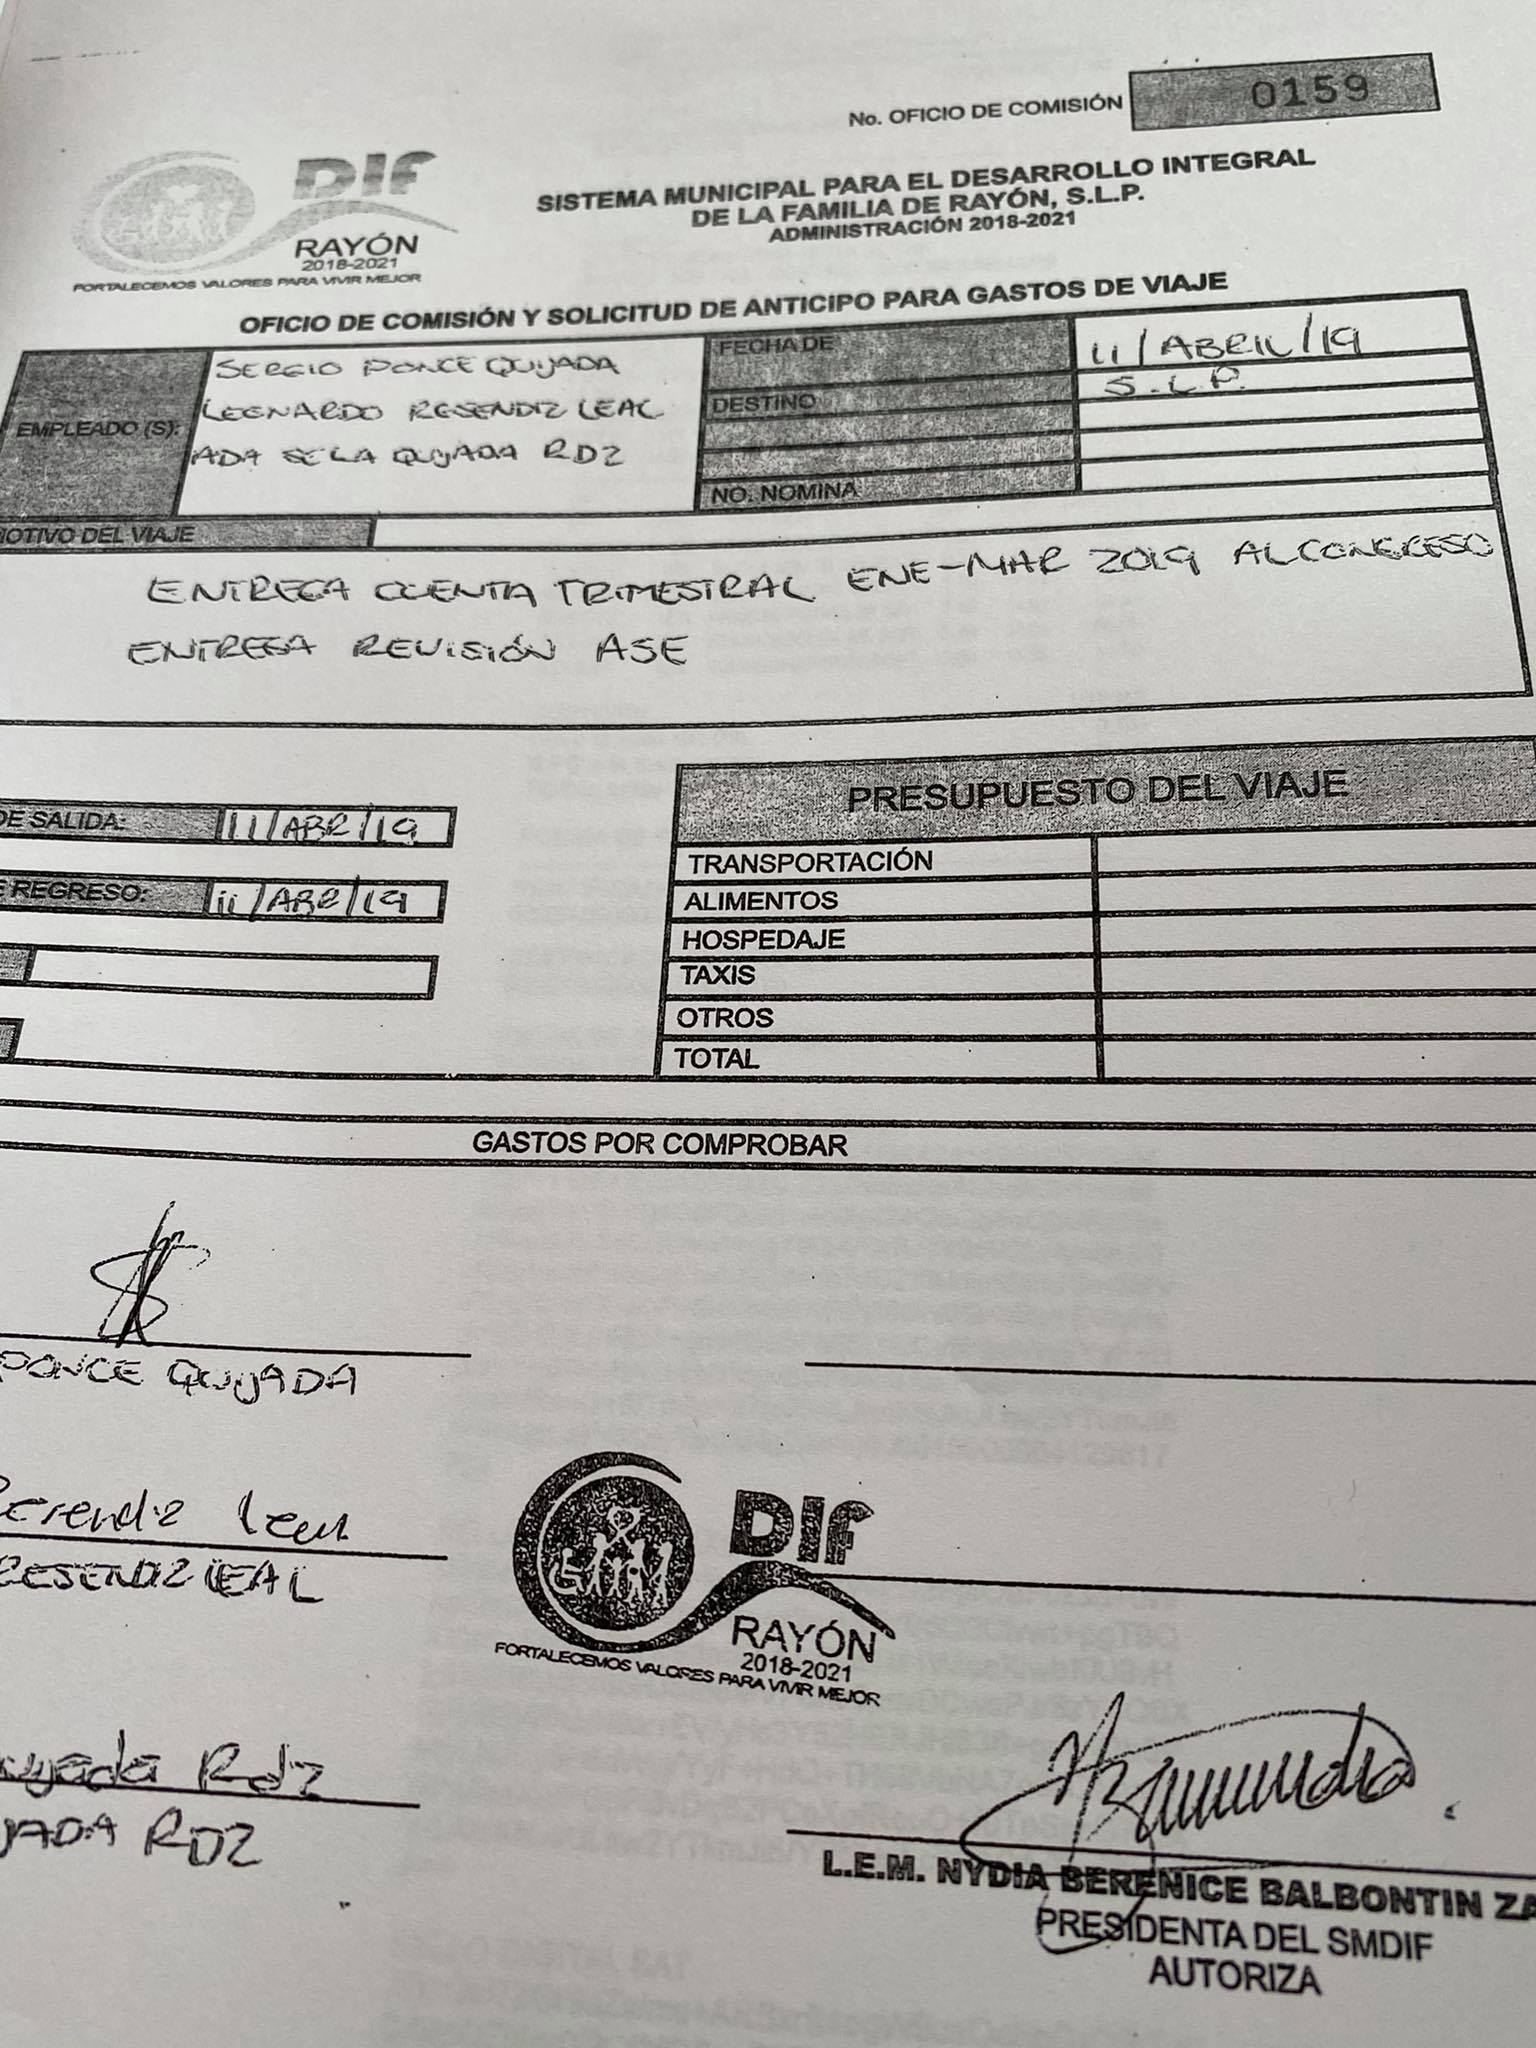 No. OFICIO DE COMISIÓN 0159
DIF
RAYÓN
2018-2021
FORTALECEMOS VALORES PARA VIVIR MEJOR
SISTEMA MUNICIPAL PARA EL DESARROLLO INTEGRAL
DE LA FAMILIA DE RAYÓN, S.L.P.
ADMINISTRACIÓN 2018-2021
OFICIO DE COMISIÓN Y SOLICITUD DE ANTICIPO PARA GASTOS DE VIAJE
EMPLEADO (S):
SERGIO PONCE QUIJADA
LEONARDO RESENDIZ LEAL
ADA SELA QUIJADA RDZ
FECHA DE 11/ABRIL/19
DESTINO S.L.P.
NO. NOMINA
MOTIVO DEL VIAJE
ENTREGA CUENTA TRIMESTRAL ENE-MAR 2019 AL CONGRESO
ENTREGA REVISIÓN ASE
DE SALIDA: 11/ABR/19
E REGRESO: 11/ABR/19
PRESUPUESTO DEL VIAJE
TRANSPORTACIÓN
ALIMENTOS
HOSPEDAJE
TAXIS
OTROS
TOTAL
GASTOS POR COMPROBAR
PONCE QUIJADA
Resendiz Leal
RESENDIZ LEAL
DIF
RAYÓN
2018-2021
FORTALECEMOS VALORES PARA VIVIR MEJOR
uijada Rdz
JADA RDZ
L.E.M. NYDIA BERENICE BALBONTIN ZA
PRESIDENTA DEL SMDIF
AUTORIZA